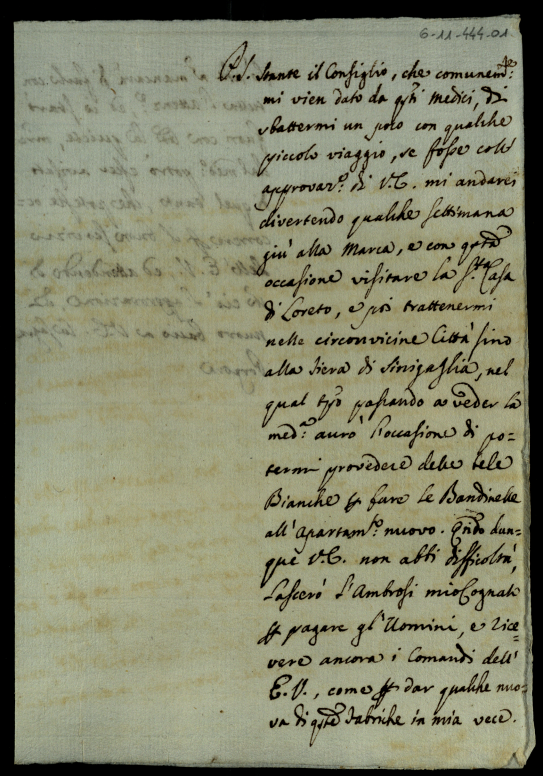 6-11-444-01
P.S. Stante il Consiglio, che comunem:te
mi vien dato da q̃sti Medici, di
sbattermi un poco con qualche
piccolo viaggio, se fosse coll'
approvaz.e di V.E. mi andarei
divertendo qualche settimana
giù alla Marca, e con q̃sta
occasione visitare la S.ta Casa
di Loreto, e poi trattenermi
nelle circonvicine Città sino
alla fiera di Sinigaglia, nel
qual tp̃o passando a veder la
med:a aurò l'occasione di po=
termi provedere delle tele
Bianche ꝑ fare le Bandinelle
all'Apartam:to nuovo. Qñdo dun=
que V.E. non abbi difficoltà,
Lascerò l'Ambrosi mio Cognato
ꝑ pagare gl'Uomini, e rice=
vere ancora i Comandi dell'
E.V., come ꝑ dar qualche nuo=
va di q̃ste fabriche in mia vece.